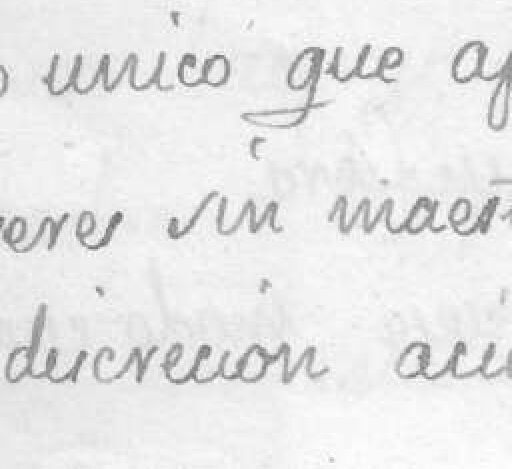 o unico que ap
eres sin maest
discrecion aci